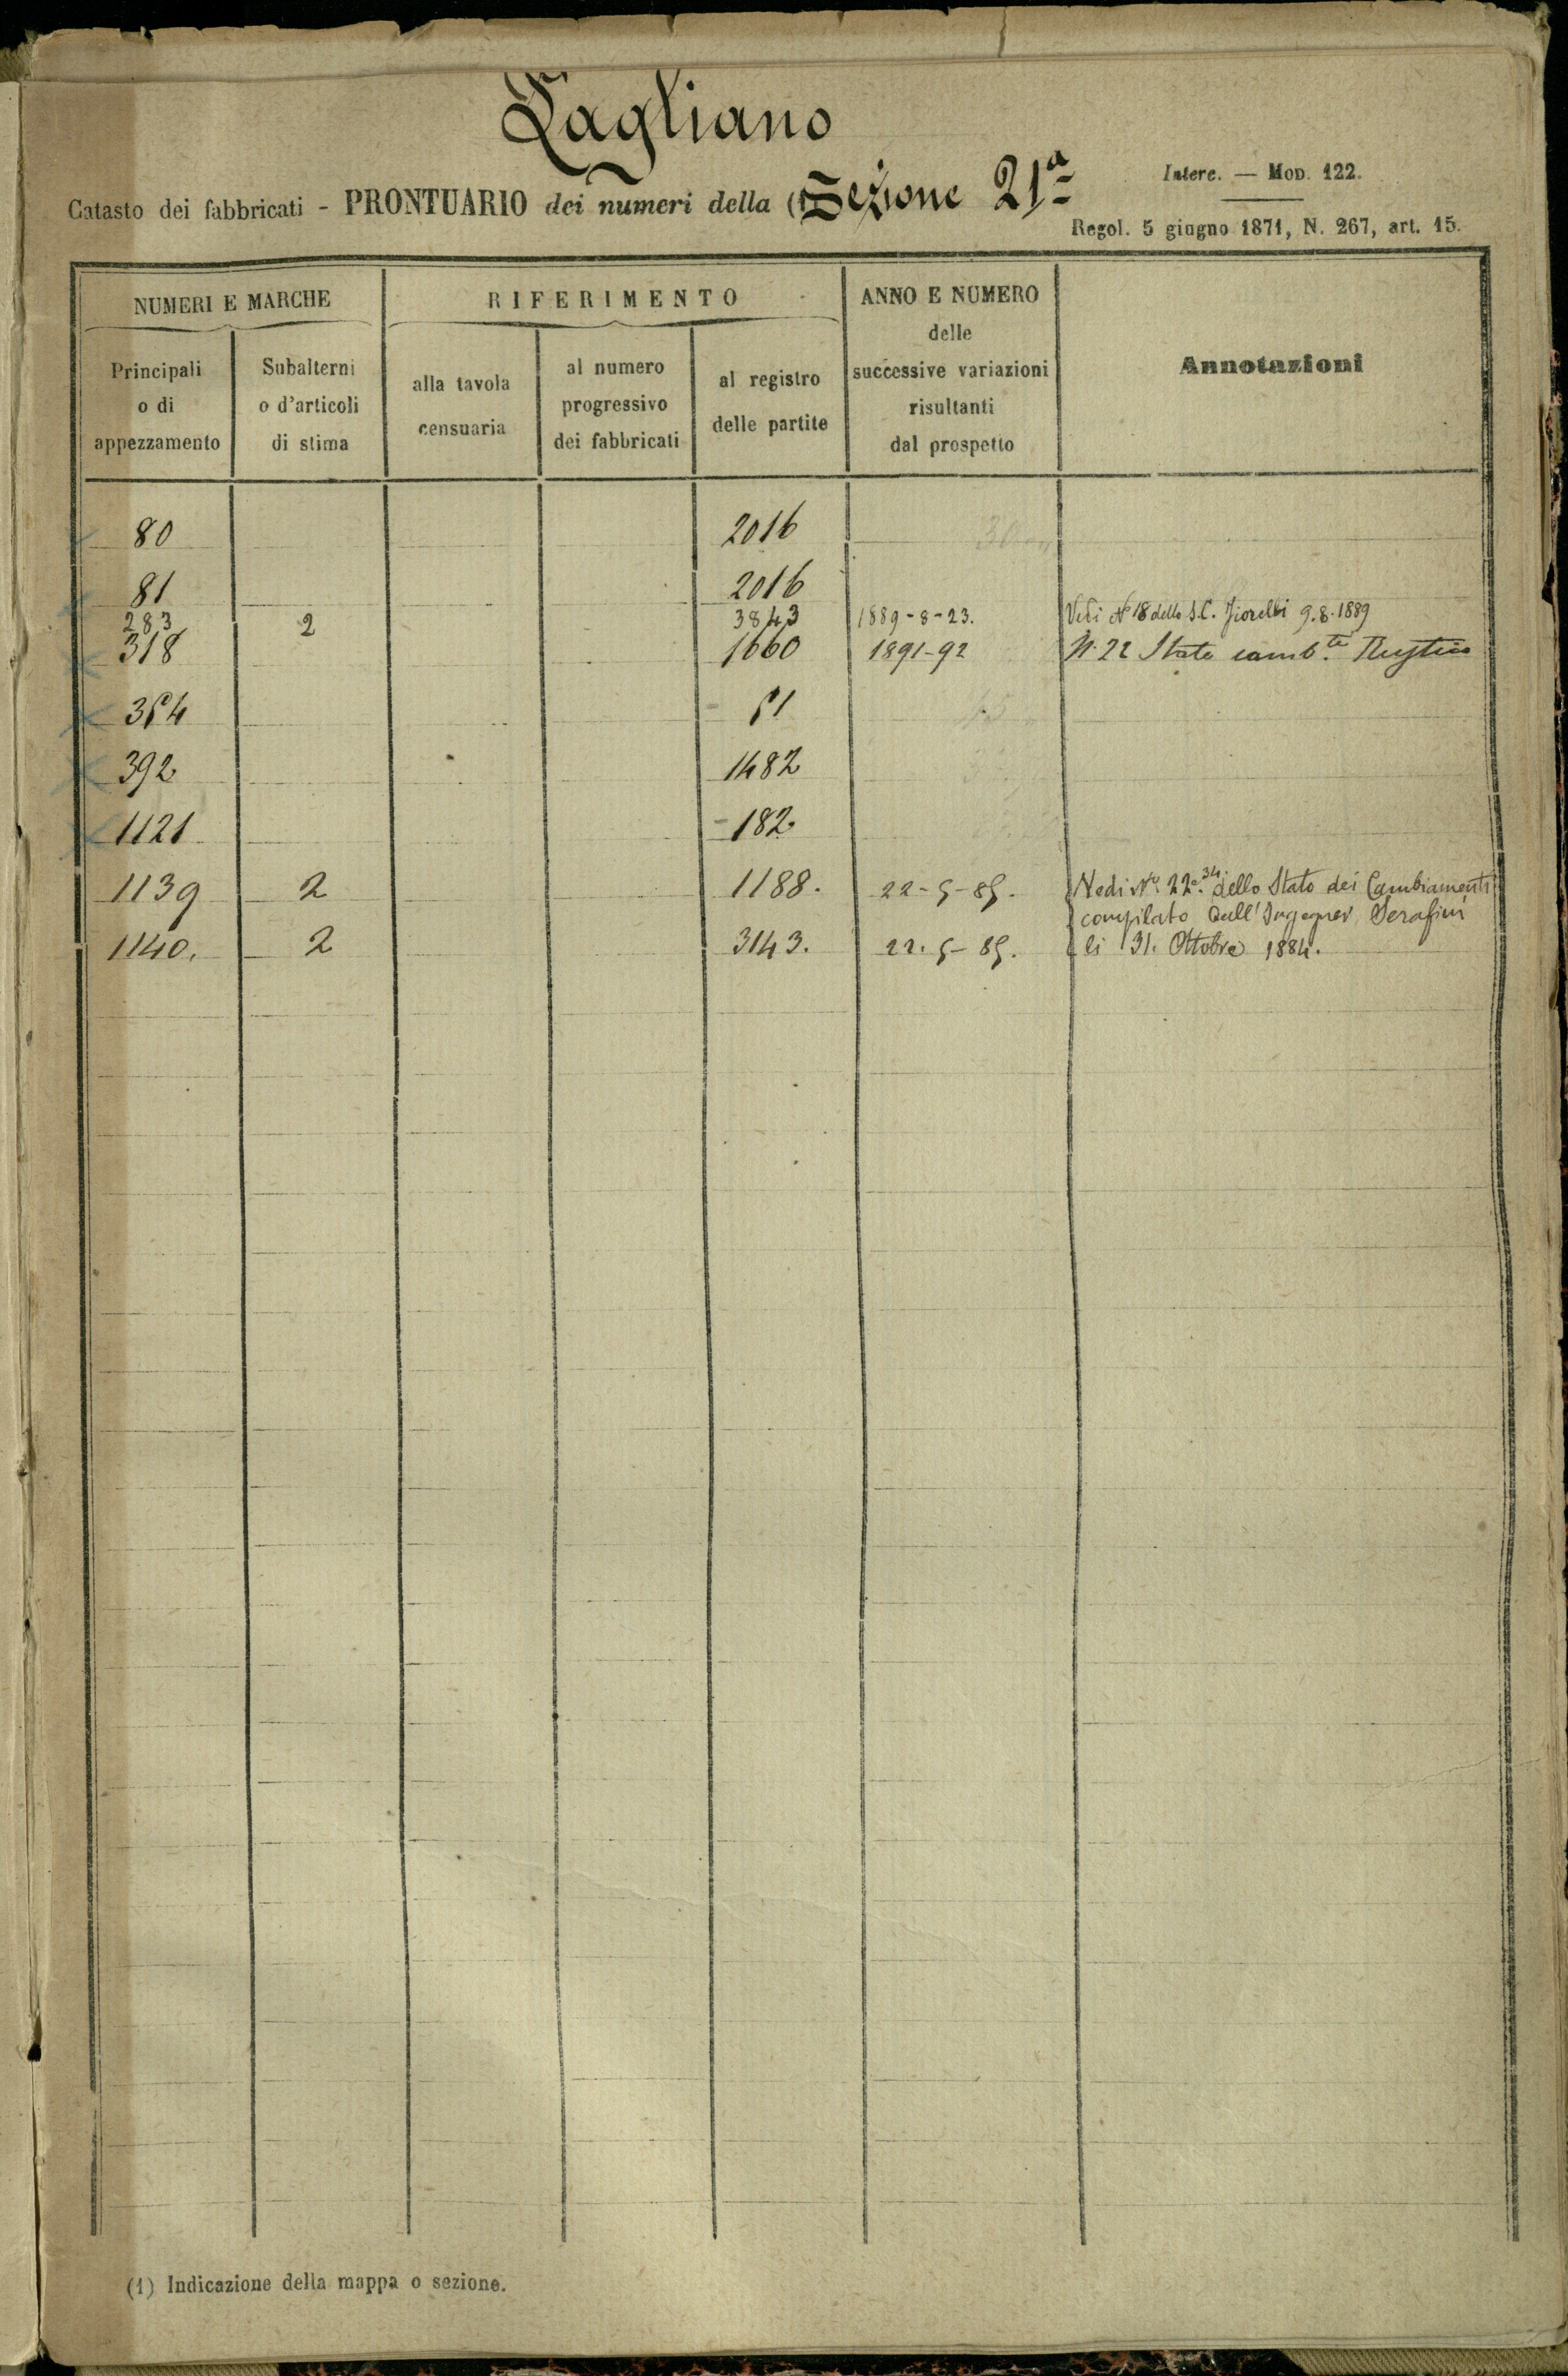 Pagliano
Catasto dei fabbricati - PRONTUARIO dei numeri della (1) Sezione 21ª
Interc. — Mod. 122.
Regol. 5 giugno 1871, N. 267, art. 15.
NUMERI E MARCHE
RIFERIMENTO
ANNO E NUMERO
delle
successive variazioni
risultanti
dal prospetto
Annotazioni
Principali
o di
appezzamento
Subalterni
o d'articoli
di stima
alla tavola
censuaria
al numero
progressivo
dei fabbricati
al registro
delle partite
80 2016
81 2016
283 2 3843 1889-8-23. Vedi Nº 18 dello S.C. Fiorelli 9.8.1889
318 1660 1891-92 N. 22 Stato camb.ti Rustico
354 51
392 1482
1121 182
1139 2 1188. 22-5-85. Vedi Nº. 22e.34 dello Stato dei Cambiamenti
compilato dall'Ingegner Serafini
1140. 2 3143. 22.5-85. li 31. Ottobre 1884.
(1) Indicazione della mappa o sezione.